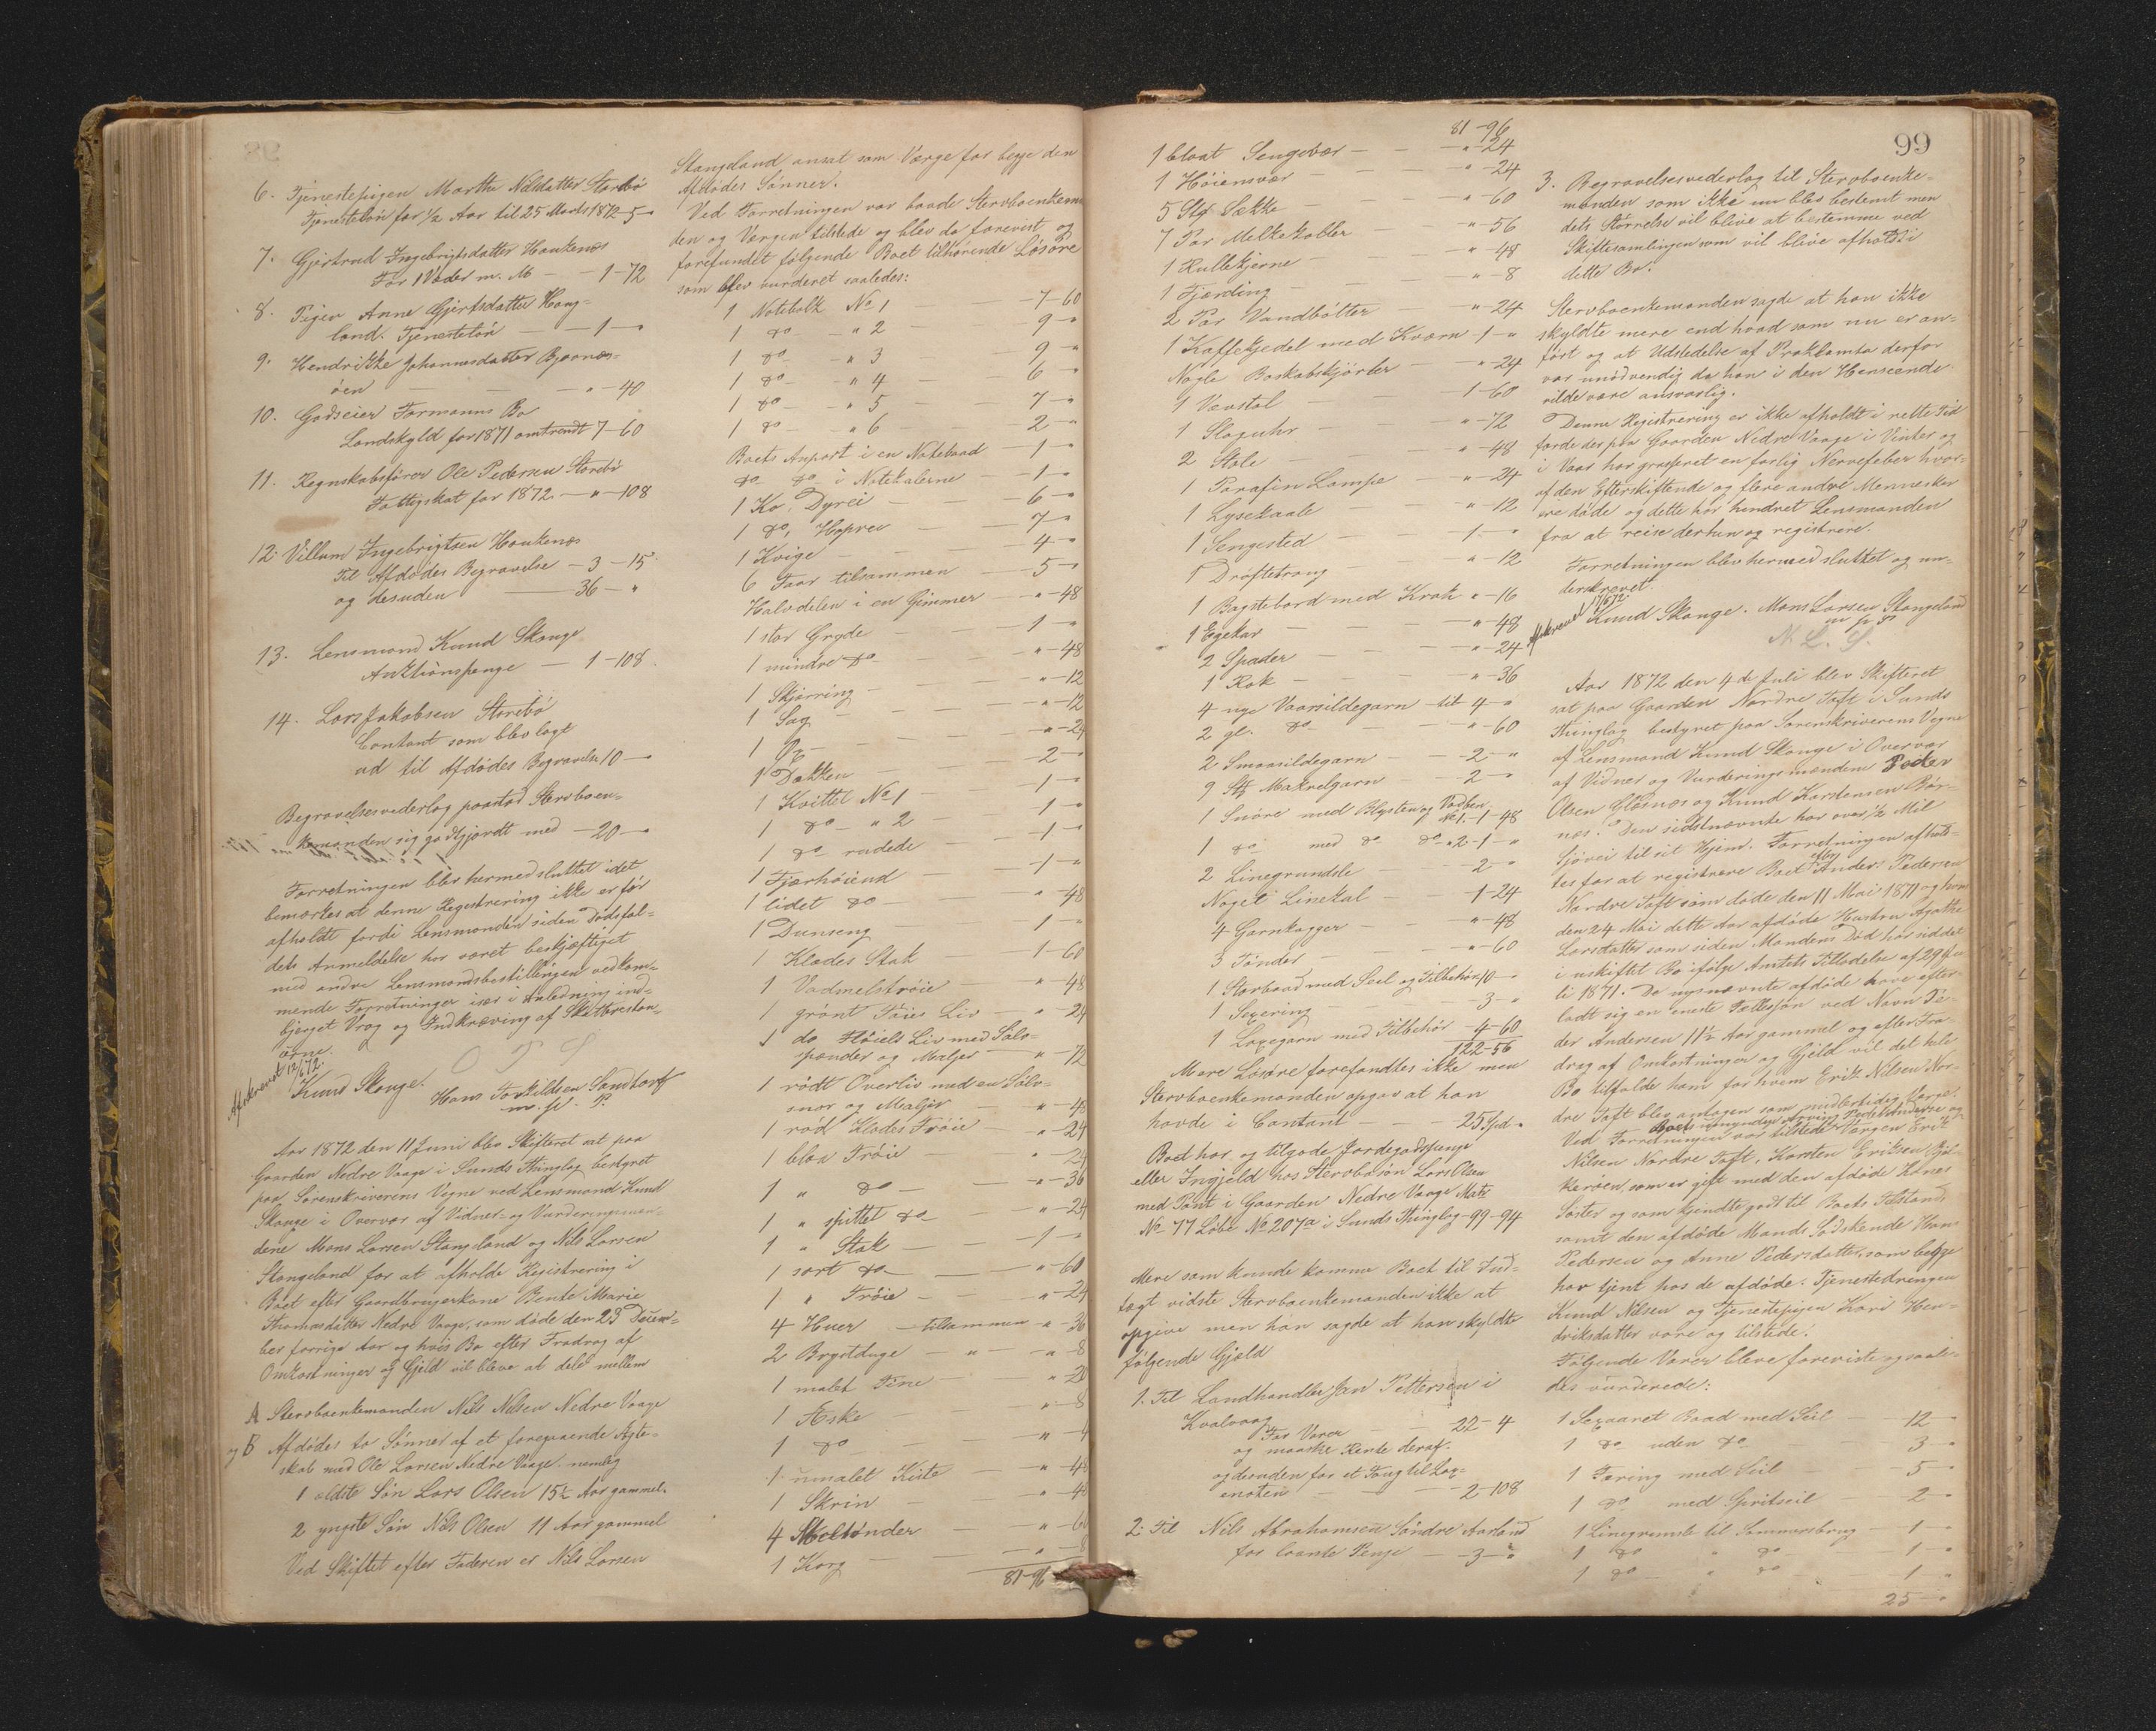 6. Tjenestepigen Marthe Nilsdatter Storebø
Tjenesteløn for 1/2 Aar til 25 Marts 1872 5 - "
7. Gjertrud Ingebrigtsdatter Haukenæs
For 1 Væder m. M - - 1 - 72
8. Pigen Anne Gjertsdatter Haug-
land. Tjenesteløn - - 1 - "
9. Hendrikke Johannesdatter Bjørnes-
øen - - " - 40
10. Godseier Formanns Bo
Landskyld for 1871 omtrendt 7 - 60
11. Regnskabsfører Ole Pedersen Storebø
Fattigskat for 1872 - " - 108
12. Villum Ingebrigtsen Haukenæs
Til Afdødes Begravelse - 3 - 15
og desuden - 36 - "
13. Lensmand Knud Skouge
Auktionspenge - 1 - 108
14. Lars Jakobsen Storebø
Contant som blev lagt
ud til Afdødes Begravelse 10 - "
Begravelsesvederlag paastod Stervboen-
kemanden sig godtgjordt med - 20 - "
Forretningen blev hermed sluttet idet
bemærkes at denne Registrering ikke er før
afholdt fordi Lensmanden siden Dødsfal-
dets Anmeldelse har været beskjæftiget
med andre Lensmandsbestillingen vedkom-
mende Forretninger især i Anledning ind-
bjerget Vrag og Indkræving af Skatterestan-
cerne.
Afskrevet 12/6 72.
Knud Skouge. Hans Torkildsen Sandtorv
m. f. P.
Aar 1872 den 11 Juni blev Skifteret sat paa
Gaarden Nedre Vaage i Sunds Thinglag bestyret
paa Sørenskriverens Vegne ved Lensmand Knud
Skouge i Overvær af Vidner- og Vurderingsmæn-
dene Mons Larsen Stangeland og Nils Larsen
Stangeland for at afholde Registrering i
Boet efter Gaardbrugerkone Bente Marie
Thomasdatter Nedre Vaage, som døde den 23 Decem-
ber forrige Aar og hvis Bo efter Fradrag af
Omkostninger og Gjeld vil bleve at dele mellem
A Stervboenkemanden Nils Nilsen Nedre Vaage
og B Afdødes to Sønner af et foregaaende Ægte-
skab med Ole Larsen Nedre Vaage. nemlig
1 ældste Søn Lars Olsen 15 1/2 Aar gammel.
2 yngste Søn Nils Olsen 11 Aar gammel
Ved Skiftet efter Faderen er Nils Larsen
Stangeland ansat som Værge for begge den
Afdødes Sønner.
Ved Forretningen var baade Stervboenkeman
den og Værgen tilstede og blev da forevist og
forefundet følgende Boet tilhørende Løsøre
som blev vurderet saaledes:
1 Notebolk No 1 - 7 - 60
1 do - " 2 9 - "
1 do - " 3 9 - "
1 do - " 4 - 6 - "
1 do - " 5 - 7 - "
1 do - " 6 - 2 - "
Boets Anpart i en Notebaad - 1 - "
do do i Notekalerne - 1 - "
1 Ko, Dyrei - 6 - "
1 do, Haprei - 7 - "
1 Kvige - 4 - "
6 Faar tilsammen - 5 - "
Halvdelen i en Gimmer - " - 48
1 stor Gryde - 1 - "
1 mindre do - " - 48
1 Skjørring - " - 12
1 Sag - " - 12
1 Øx - " - 24
1 Dækken - 2 - "
1 Kvittel No 1 - 1 - "
1 do - " 2 - 1 - "
1 do rudede - 1 - "
1 Fjærhøiend - 1 - "
1 lidet do - " - 48
1 Dunseng - 1 - "
1 Klædes Stak - 1 - 60
1 Vadmelstrøie - " - 48
1 grønt Tøies Liv - " - 24
1 do Fløiels Liv med Sølv-
spænder og Maljer - " - 72
1 rødt Overliv med en Sølv-
snor og Maljer - " - 48
1 rød Klædes Trøie - " - 24
1 blaa Trøie - " 24
1 " do - " - 36
1 " spittet do - " - 24
1 " Stak - 1 - "
1 sort do - " - 60
1 " Trøie - " - 24
4 Huer - tilsammen - " - 36
2 Brystduge - " - " - 8
1 malet Tine - " 20
1 Æske - " - 8
1 do - " - 4
1 umalet Kiste - " - 48
1 Skrin - " - 48
4 Skoltønder - " - 60
1 Korg - " - 8
81 - 96
99
81 - 96
1 blaat Sengevær - " - 24
1 Høiensvær - " - 24
5 Stk Sække - " - 60
7 Par Melkekoller - " - 56
1 Rullekjerne - " - 48
1 Fjærding - " - 8
2 Par Vandbøtter - " - 24
1 Kaffekjedel med Kværn 1 - "
Nogle Boskabskjørler - " - 24
1 Vævstol - 1 - 60
1 Slaguhr - " - 72
2 Stole - " - 48
1 Parafin Lampe - " - 24
1 Lysekaale - " - 12
1 Sengested - 1 - "
1 Drøftetroug - " - 12
1 Bagstebord med Krak " - 16
1 Egekar - " - 48
2 Spader - " - 24
1 Rok - " - 36
4 nye Vaarsildegarn til 4 - "
2 gl. do " - 60
2 Smaasildegarn - 2 - "
9 Stk Makrelgarn - 2 - "
1 Snøre med Blysten og Vadben No 1 - 1 - 48
1 do med do do " 2 - 1 - "
2 Linegrundsle - 2 - "
Noget Linekal - 1 - 24
4 Garnkagger - " - 48
3 Tønder - " - 60
1 Storbaad med Seil og Tilbehør 10 - "
1 Sexæring - 3 - "
1 Laxegarn med Tilbehør - 4 - 60
122 - 56
Mere Løsøre forefandtes ikke men
Stervboenkemanden opgav at han
havde i Contant - - 25 Spd "
Boet har og tilgode Jordegodspenge
eller Ingjeld hos Stervbosøn Lars Olsen
med Pant i Gaarden Nedre Vaage Matr
No 77 Løbe No 207a i Sunds Thinglag - 99 - 94
Mere som kunde komme Boet til Ind-
tægt vidste Stervboenkemanden ikke at
opgive men han sagde at han skyldte
følgende Gjæld
1. Til Landhandler Jan Pettersen i
Kvalvaag
For Varer - 22 - 4
og maaske Rente deraf.
og desuden for et Toug til Lax-
enoten - - 2 - 108
2. Til Nils Abrahamsen Søndre Aarland
for laante Penge - 3 - "
3. Begravelsesvederlag til Stervboenke-
manden som ikke nu blev bestemt men
dets Størrelse vil blive at bestemme ved
Skiftesamlingen som vil blive afholdt i
dette Bo.
Stervboenkemanden sagde at han ikke
skyldte mere end hvad som nu er an-
ført og at Udstedelse af Proklamta derfor
var unødvendig da han i den Henseende
vilde være ansvarlig.
Denne Registrering er ikke afholdt i rette Tid
fordi der paa Gaarden Nedre Vaage i Vinter og
i Vaar har grasseret en farlig Nervefeber hvor-
af den Efterskiftende og flere andre Mennesker
ere døde og dette har hindret Lensmanden
fra at reise derhen og registrere.
Forretningen blev hermed sluttet og un-
derskrevet.
Afskrevet 17/6 72.
Knud Skouge. Mons Larsen Stangeland
m. f. P.
N. L. S.
Aar 1872 den 4de Juli blev Skifteret
sat paa Gaarden Nordre Toft i Sunds
Thinglag bestyret paa Sorenskriverens Vegne
af Lensmand Knud Skouge i Overvær
af Vidner og Vurderingsmændene Peder
Olsen Glesnæs og Knud Karstensen Bør-
næs. Den sidstnævnte har over 1/2 Mil
Sjøvei til sit Hjem. Forretningen afhold-
tes for at registrere Boet efter Anders Pedersen
Nordre Toft som døde den 11 Mai 1871 og hans
den 24 Mai dette Aar afdøde Hustru Agathe
Larsdatter som siden Mandens Død har siddet
i uskiftet Bo ifølge Amtets Tilladelse af 29 Ju-
li 1871. De nysnævnte afdøde have efter-
ladt sig en eneste Fællessøn ved Navn Pe-
der Andersen 11 1/2 Aar gammel og efter Fra-
drag af Omkostninger og Gjeld vil det hele
Bo tilfalde ham, for hvem Erik Nilsen Nor-
dre Toft blev antagen som midlertidig Værge.
Ved Forretningen var tilstede Værgen Erik
Nilsen Nordre Toft, Karsten Eriksen Gjø-
kerøen, som er gift med den afdøde Kones
Søster og som kjendte godt til Boets Tilstand
samt den afdøde Mands Sødskende Hans
Pedersen og Anne Pedersdatter, som begge
har tjent hos de afdøde. Tjenestedrengen
Knud Nilsen og Tjenestepigen Kari Hen-
driksdatter vare og tilstede.
Følgende Varer bleve foreviste og saale-
des vurderede:
1 Sexaaret Baad med Seil 12 -
1 do uden do - 3 - "
1 Færing med Seil - 5 - "
1 do med Spritseil - 2 - "
1 Linegrunsle til Sommersbrug - 1 - "
1 do " do - 1 - "
1 do " do - 1 "
25 - "